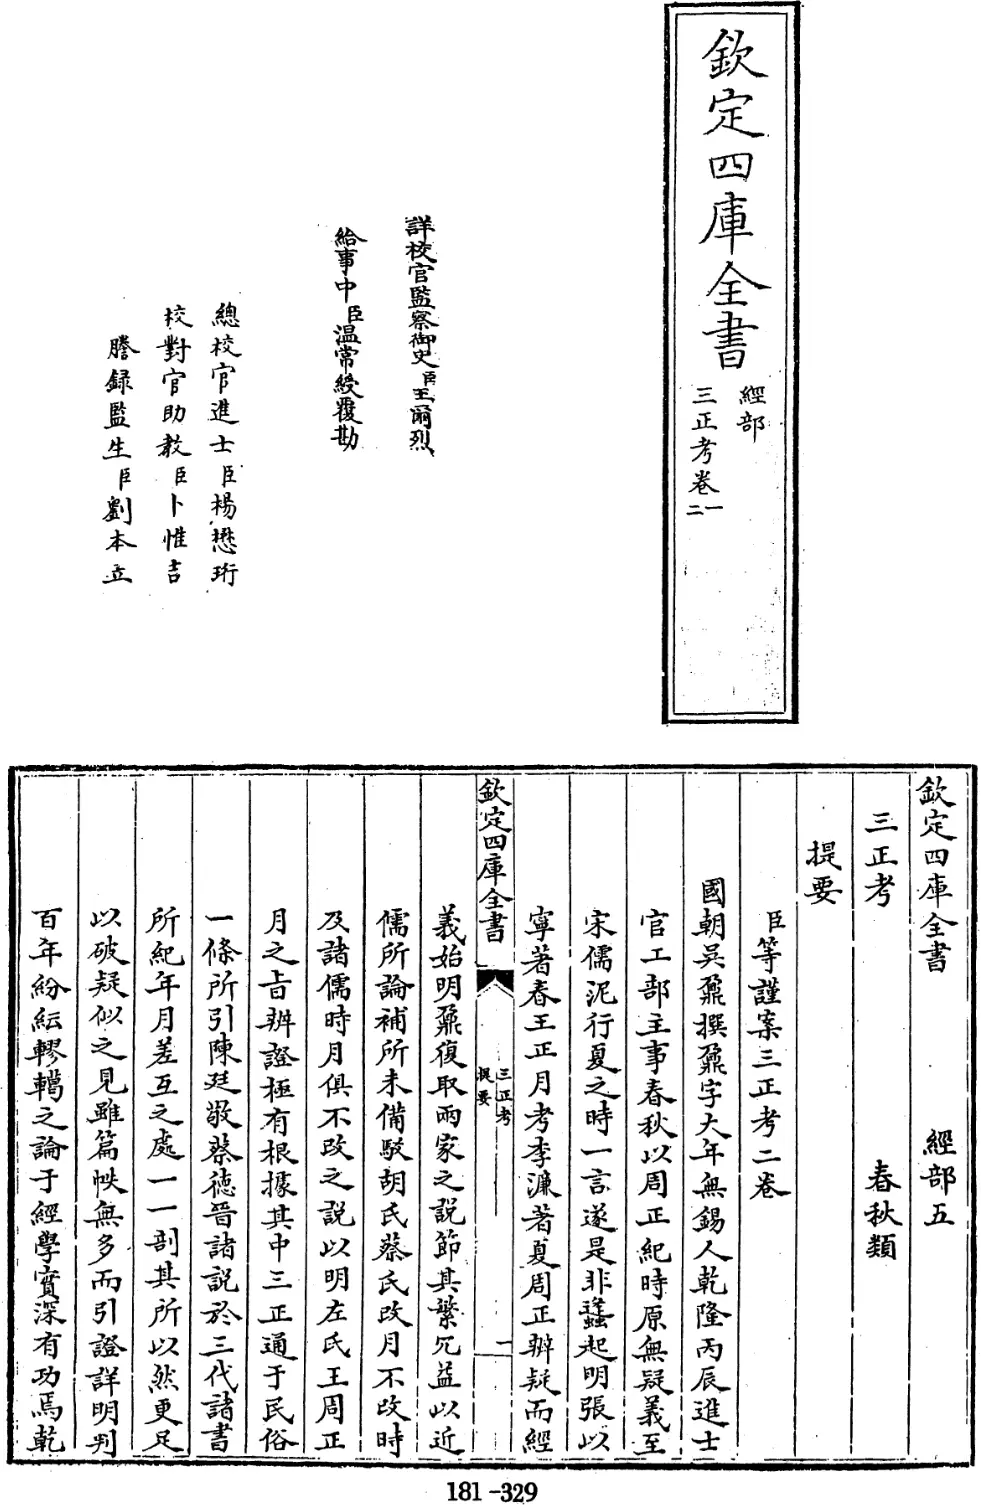 欽定四庫全書
經部
三正考卷一
二
詳校官監察御史臣王爾烈
給事中臣温常綬覆勘
總校官進士臣楊懋珩
校對官助教臣卜惟吉
謄録監生臣劉本立
欽定四庫全書 經部五
三正考 春秋類
提要
臣等謹案三正考二卷
國朝吳鼐撰鼐字大年無錫人乾隆丙辰進士
官工部主事春秋以周正紀時原無疑義至
宋儒泥行夏之時一言遂是非蠭起明張以
寧著春王正月考李濂著夏周正辨疑而經
欽定四庫全書
三正考
提要
一
義始明鼐復取兩家之說節其繁冗益以近
儒所論補所未備駁胡氏蔡氏改月不改時
及諸儒時月俱不改之説以明左氏王周正
月之㫖辨證極有根據其中三正通于民俗
一條所引陳廷敬蔡德晉諸説於三代諸書
所紀年月差互之處一一剖其所以然更足
以破疑似之見雖篇帙無多而引證詳明判
百年紛紜轇轕之論于經學實深有功焉乾
181-329